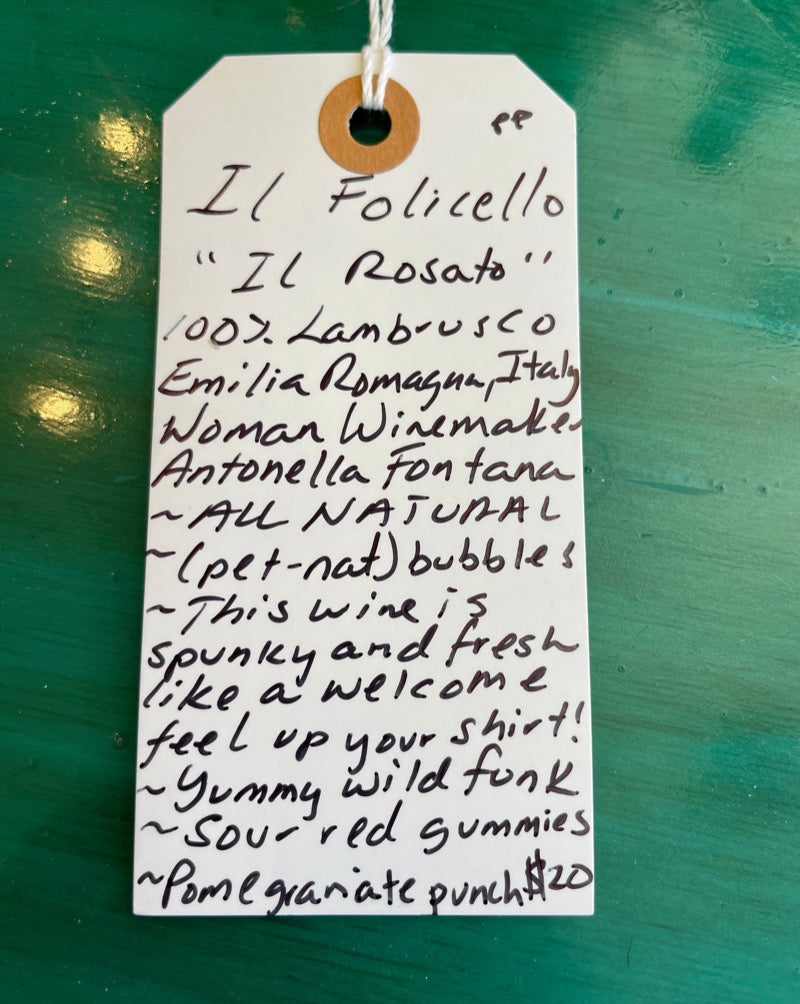 Il Folicello
"Il Rosato"
100% Lambrusco
Emilia Romagna, Italy
Woman Winemaker
Antonella Fontana
~ALL NATURAL
~(pet-nat) bubbles
~This wine is
spunky and fresh
like a welcome
feel up your shirt!
~Yummy wild funk
~Sour red gummies
~Pomegraniate punch $20